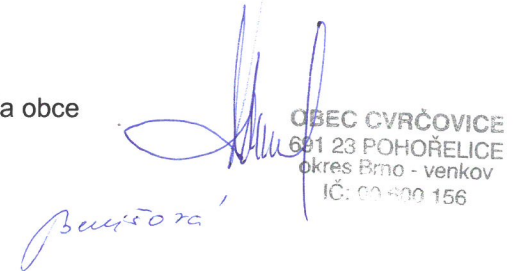 a obce
OBEC CVRČOVICE
691 23 POHOŘELICE
okres Brno - venkov
IČ: 00 600 156